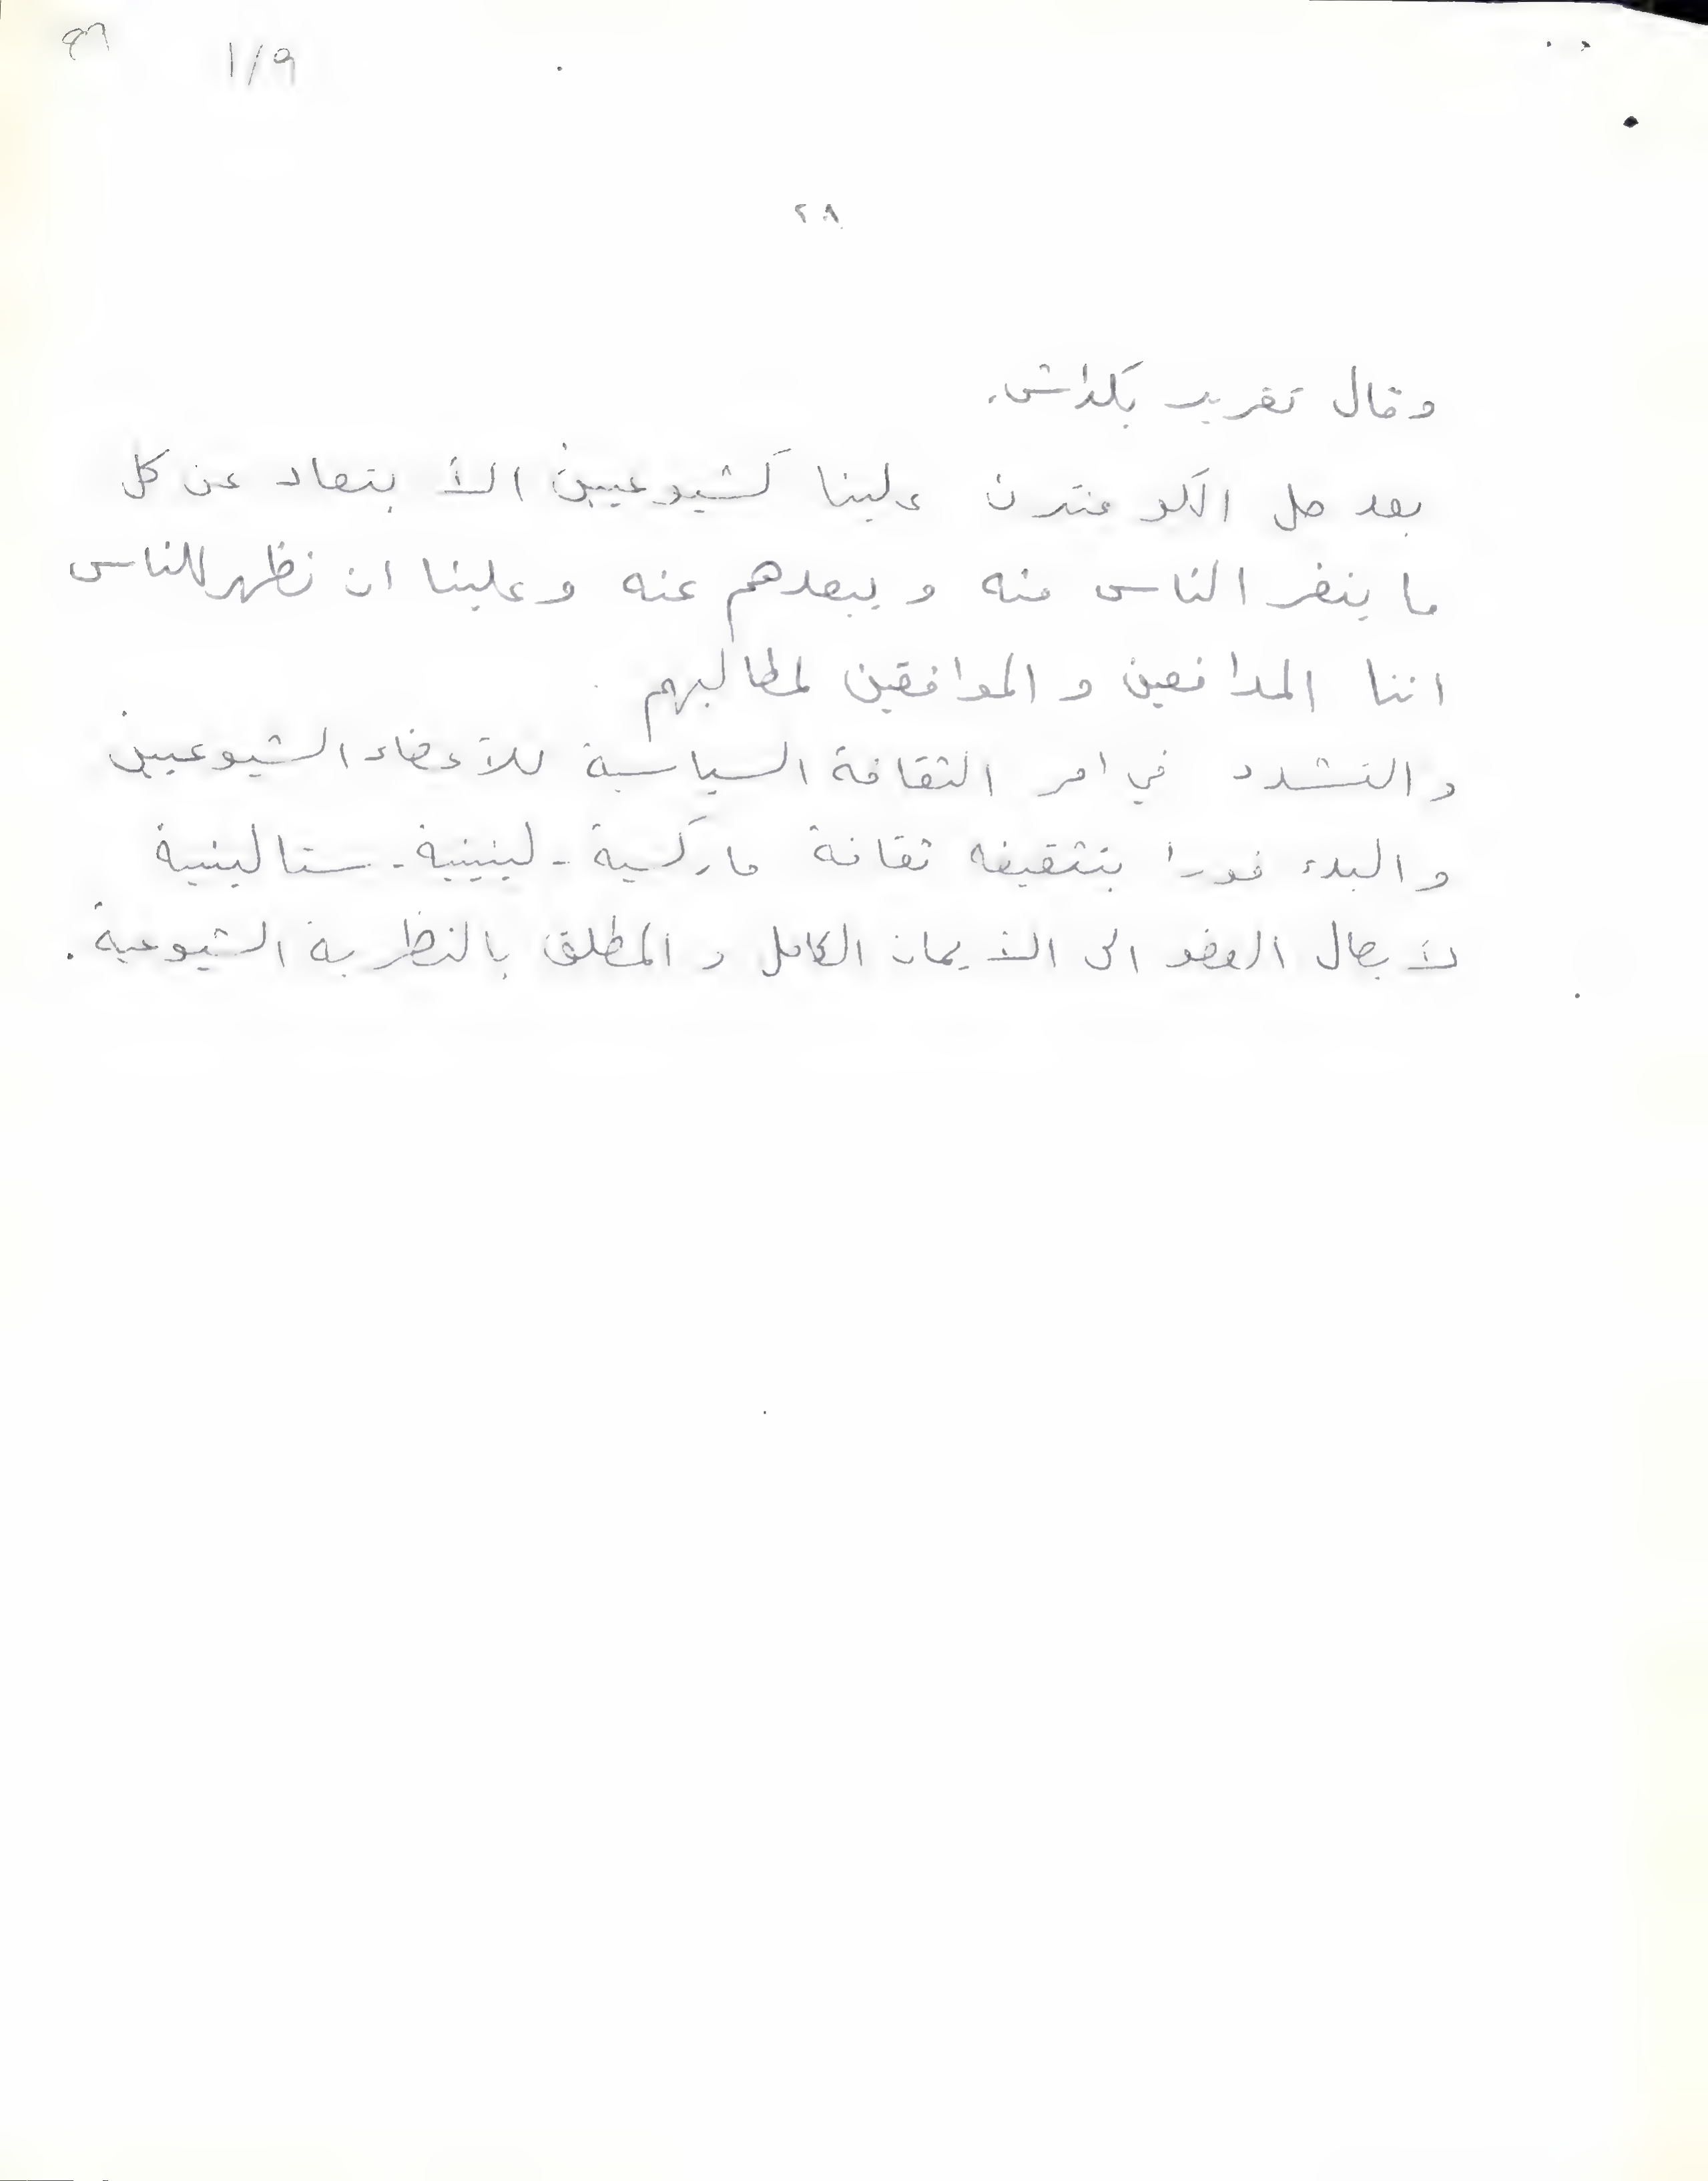 1/9
٢٨
وقال تقرير بكداش.
بعد حل الكومنترن علينا كشيوعيين الابتعاد عن كل
ما ينفر الناس منه ويبعدهم عنه وعلينا ان نظهر للناس
اننا المدافعين والموافقين لمطالبهم
والتشدد في امر الثقافة السياسية للأعضاء الشيوعيين
والبدء فورا بتثقيفه ثقافة ماركسية - لينينية - ستالينية
لأيصال العضو الى الأيمان الكامل والمطلق بالنظرية الشيوعية.